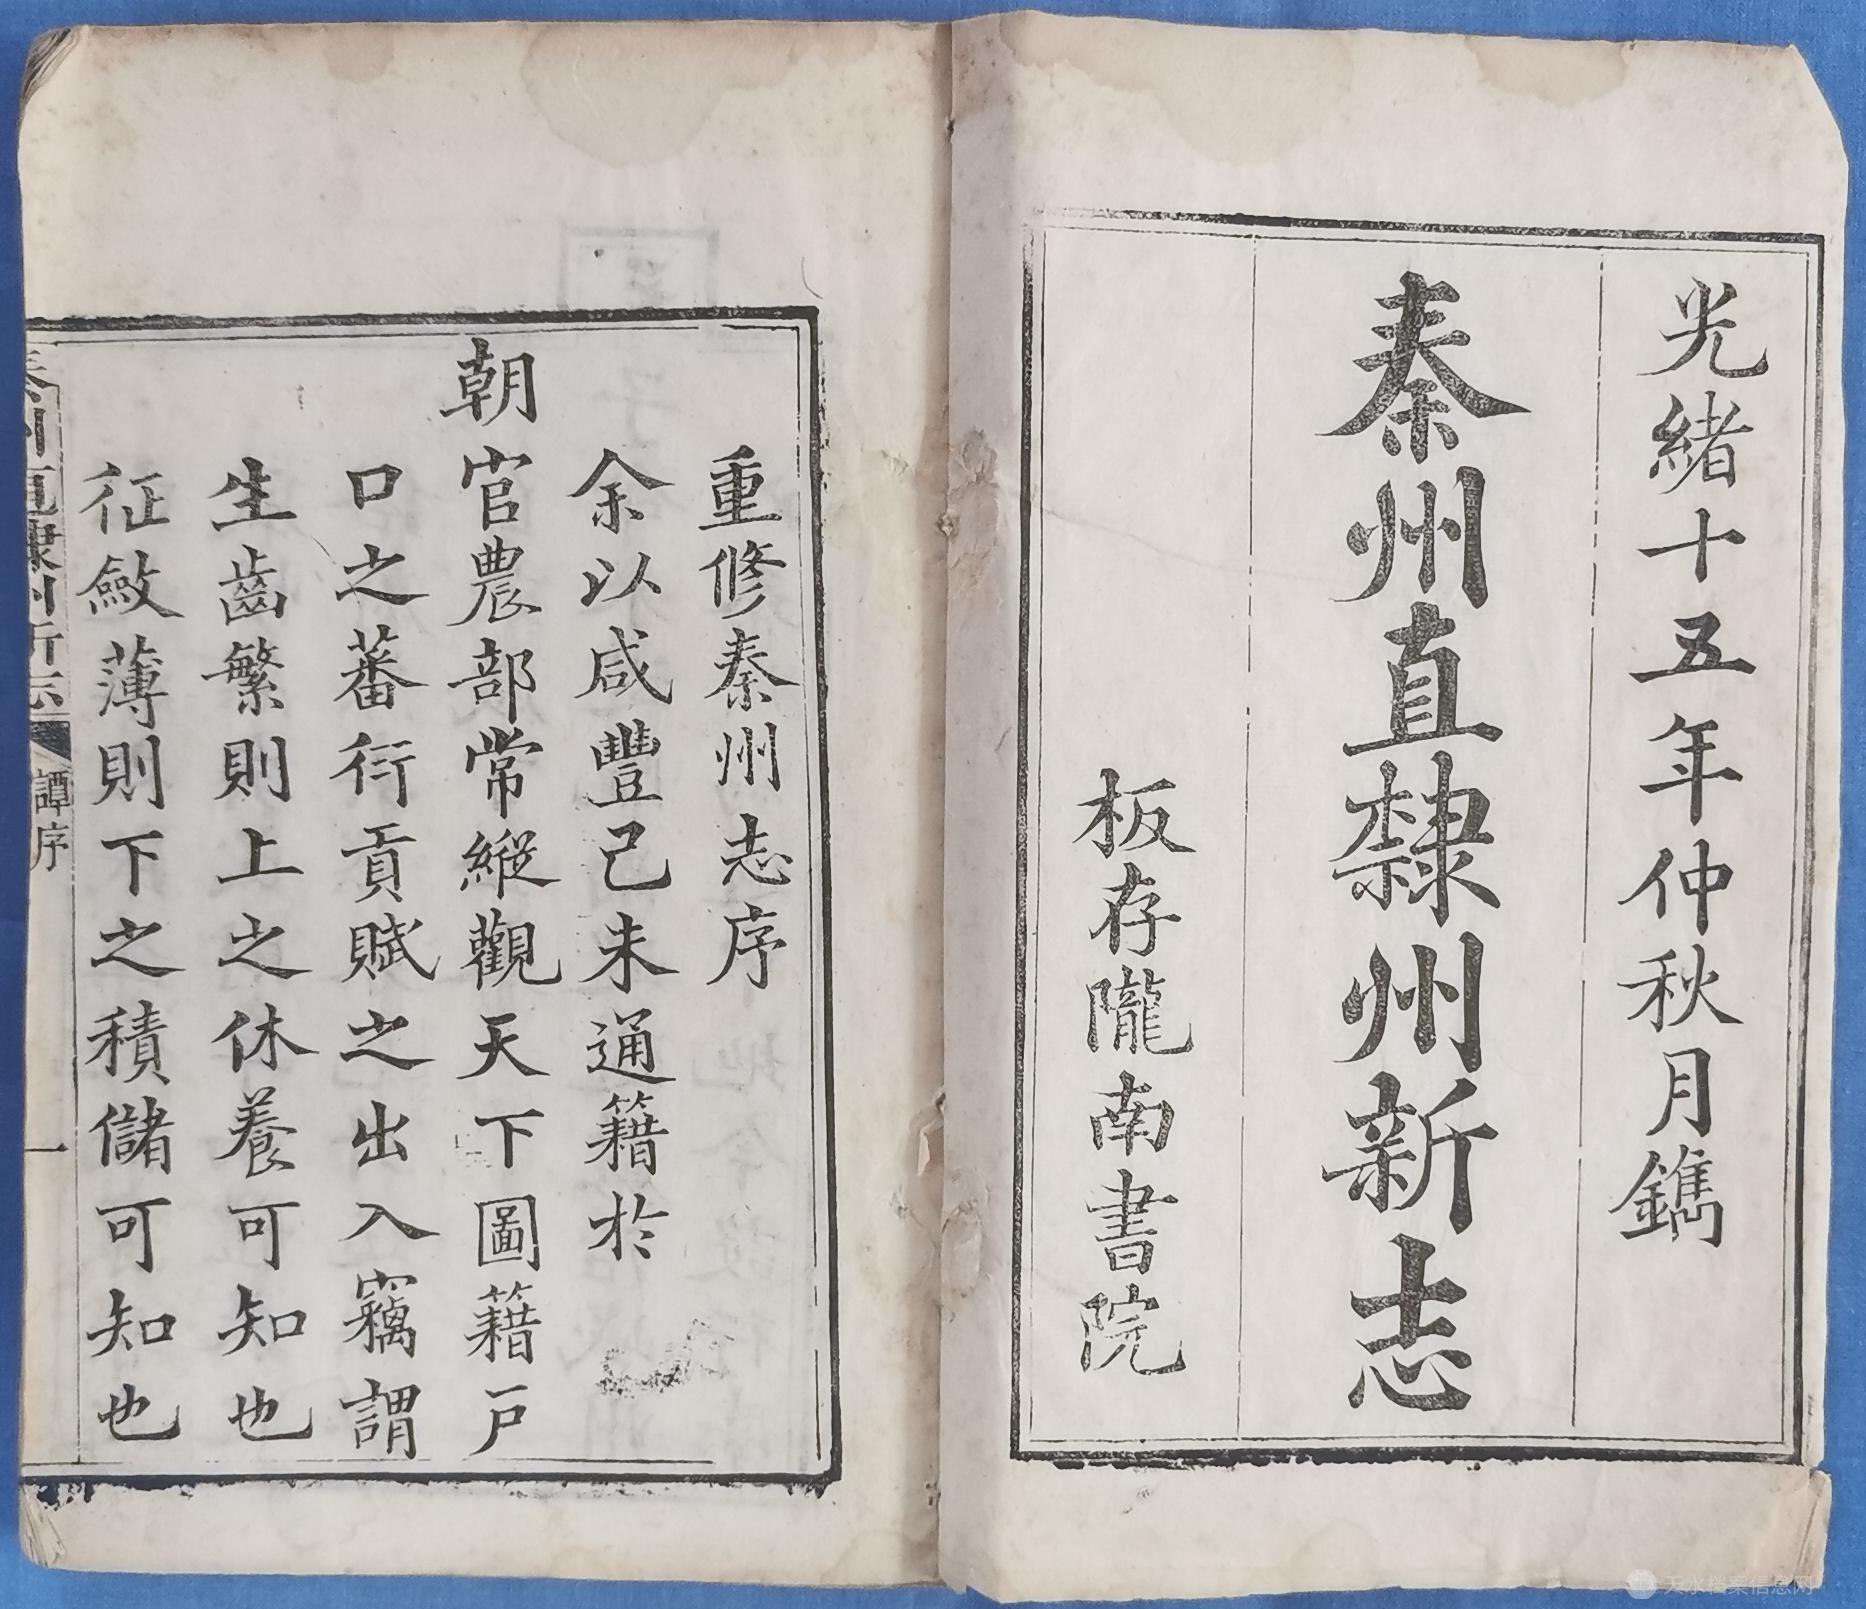 光緒十五年仲秋月鐫
秦州直隸州新志
板存隴南書院
重修秦州志序
余以咸豐己未通籍於
朝官農部常縱觀天下圖籍戶
口之蕃衍貢賦之出入竊謂
生齒繁則上之休養可知也
征斂薄則下之積儲可知也
秦州直隸州新志
譚序
一
天水档案信息网